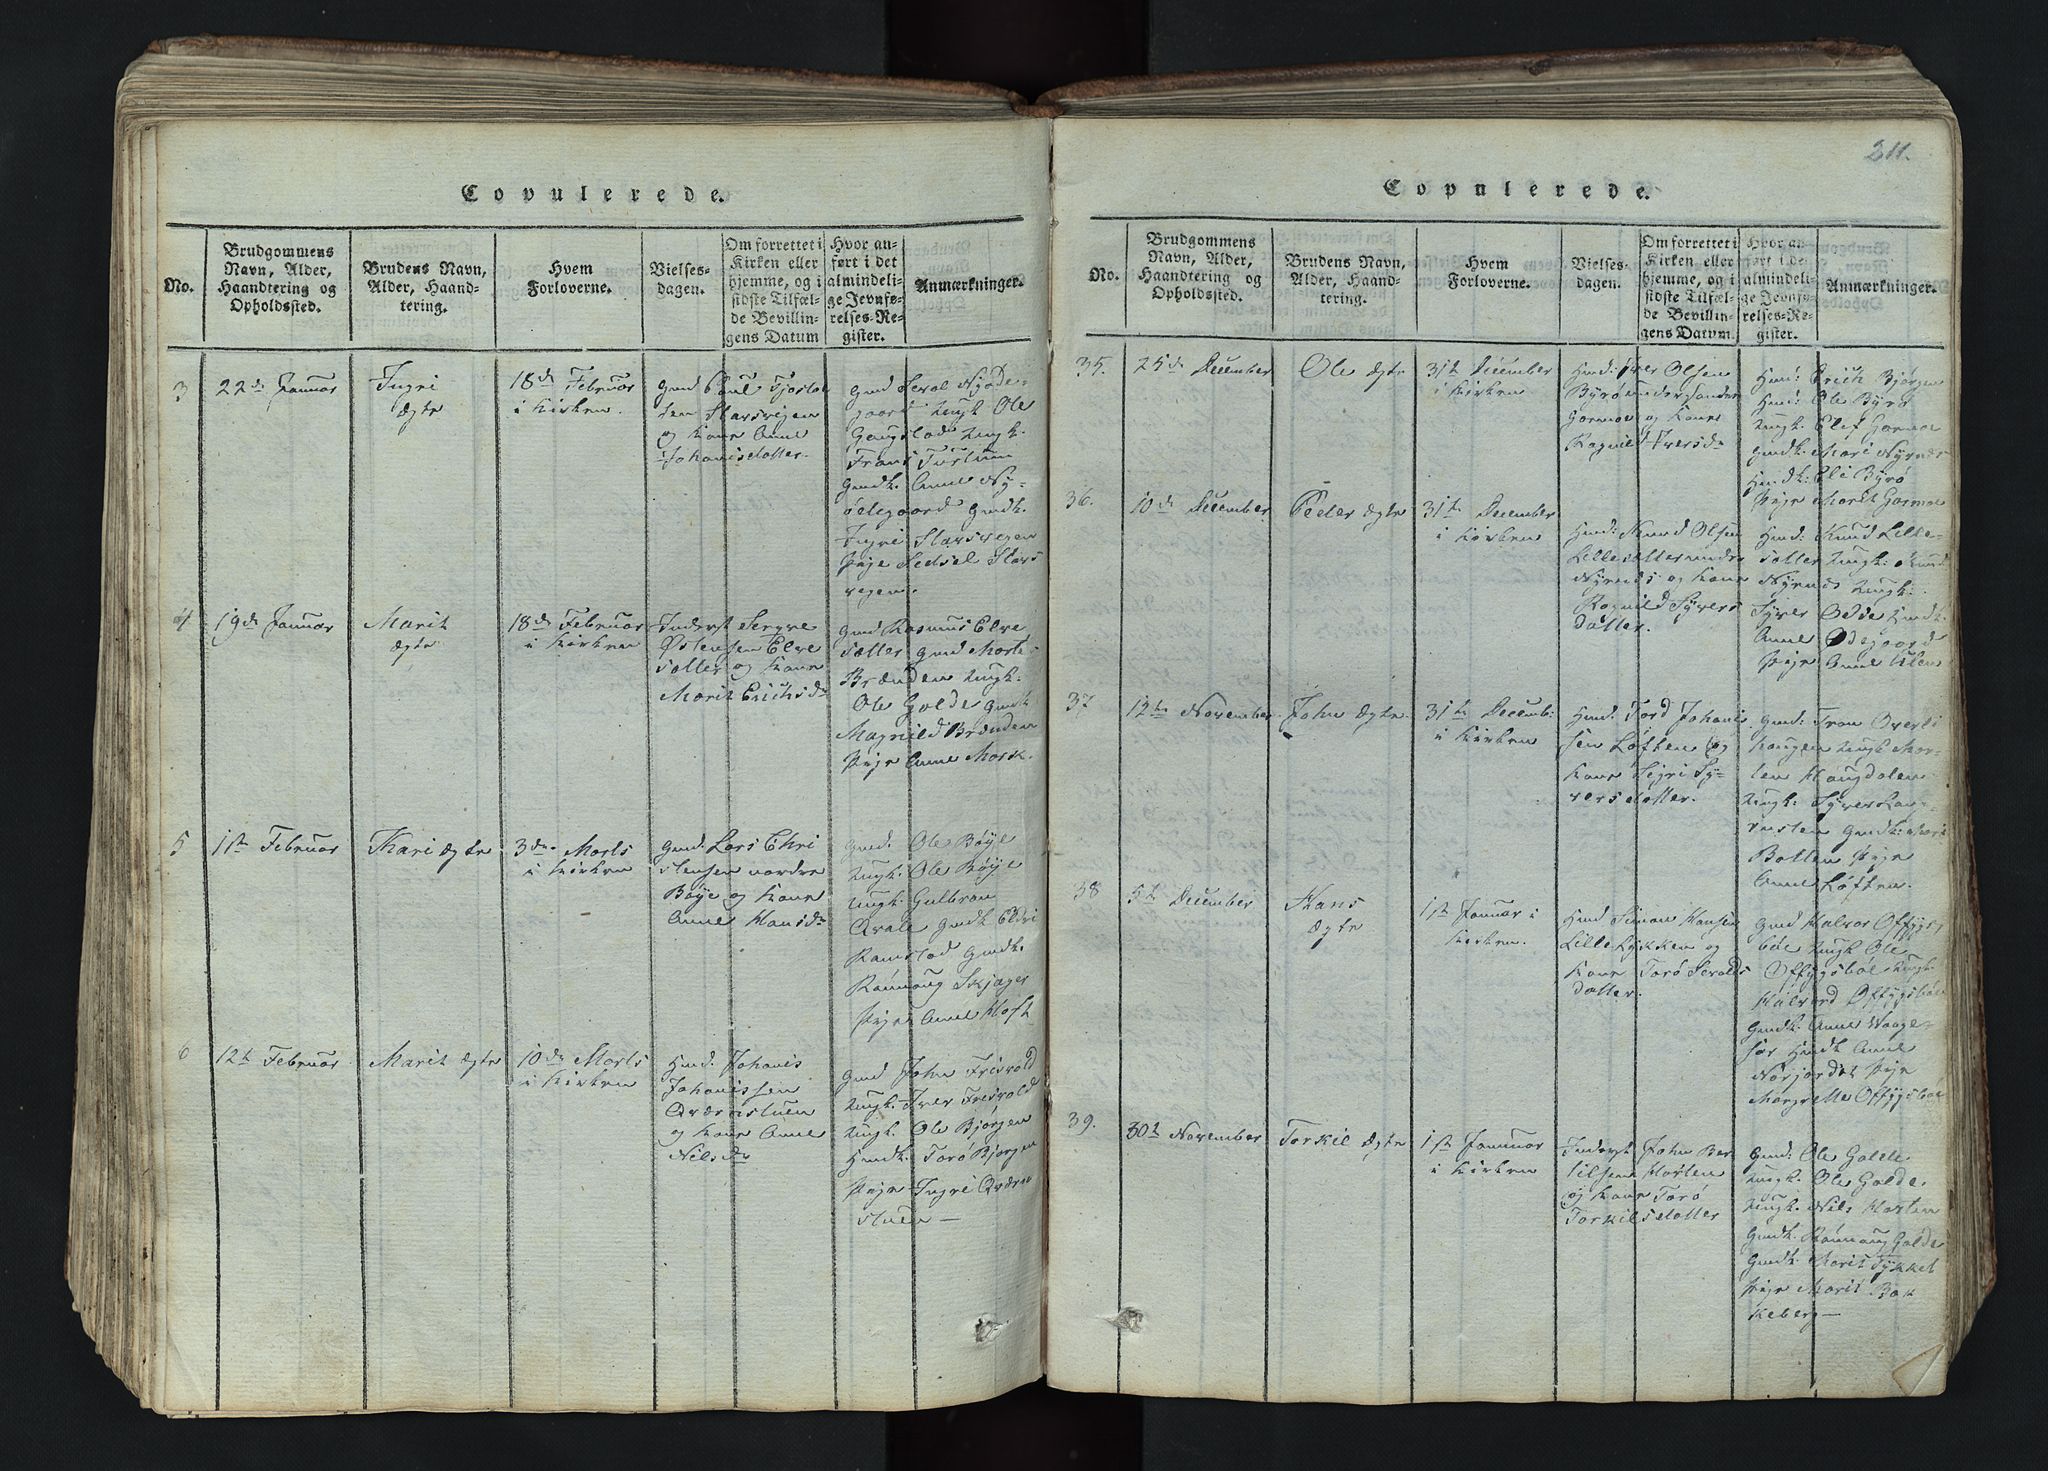 Copulerede.
No.
Brudgommens
Navn, Alder,
Haandtering og
Opholdssted.
Brudens Navn,
Alder, Haand-
tering.
Hvem
Forloverne.
Vielses-
dagen.
Om forrettet i
Kirken eller
hjemme, og i
sidste Tilfæl-
de Bevillin-
gens Datum
Hvor an-
ført i det
almindeli-
ge Jevnfø-
relses-Re-
gister.
Anmærkninger.
3
22de Januar
Ingri
Ægte
18de Februar
i Kirken.
Gmd Poul
sen
og Kone Anne
Johanisdatter.
Gmd
gaard Ungk Ole
Ungk.
Frans
Gmdk. Anne Ny-
ødegaard Gmdk.
Ingri
Pige
4
19de Januar
Marit
Ægte
18de Februar
i Kirken
Inderst
Østensen Elve
sætter og Kone
Marit Erichsdr
Gmd Rasmus Elve
sætter Gmd
Brænden Ungk.
Ole Golde Gmdk
Magnild Brænden
Pige Anne Mork.
5
1ste Februar
Mari Ægte
3de Marts
i Kirken
Gmd. Lars Chri
stensen nordre
Bøye og Kone
Anne Hansdr
Gmd. Ole Bøye
Ungk. Ole Bøye
Ungk. Gulbran
Qvale Gmdk Eldri
Ramstad Gmdk.
Rønnaug Skjager
Pige Anne
6
12te Februar
Marit Ægte
10de Marts
i Kirken
Hmd. Johanis
Johanissen
Qværnstuen
og Kone Anne
Nilsdr
Gmd John Frisvold
Ungk. Iver Frisvold
Ungk. Ole Bjorgen
Hmdk. Torø Bjorgen
Pige Ingri Qværn
stuen —
211.
Copulerede.
No.
Brudgommens
Navn, Alder,
Haandtering og
Opholdssted.
Brudens Navn,
Alder, Haand-
tering.
Hvem
Forloverne.
Vielses-
dagen.
Om forrettet i
Kirken eller
hjemme, og i
sidste Tilfæl-
de Bevillin-
gens Datum.
Hvor an-
ført i de
almindeli-
ge Jevnfø-
relses-Re-
gister.
Anmærkninger.
35.
25de December
Ole Ægte
31te December
i Kirken
Hmd: Iver Olsen
Byrø under
Gormoe og Kone
Ragnild Iversdr
Hmd: Erich Bjørgen
Hmd: Ole Byrø
Ungk. Elef Gormoe
Gmdk. Mari
Hmdk: Eli Byrø
Pige Marit Gormoe
36.
10de December
Peder Ægte
31te December
i Kirken
Hmd: Knud Olsen
Lillesætter under
og Kone
Ragnild Syvers
datter.
Hmd: Knud Lille-
sætter Ungk: Knud
Ungk:
Syver Odde
Anne Ødegaard
Pige Anne Ulen
37
12te November
John Ægte
31te Decemb:
i Kirken
Hmd: Tord Johanis
sen Løften og
Kone Sigri Sy-
versdatter.
Gmd: Tron Overli
haugen Ungk Mor-
ten Haugdalen
Ungk: Syver
Gmdk: Mari
Botten Pige
Anne Løften.
38
5te December
Hans
Ægte
1ste Januar i
Kirken.
Hmd Simon Hansen
Lille Lykken og
Kone Torø
datter.
Gmd Halvor Offigs
bøe Ungk Ole
Offygsbøe Ungk.
Halvord Offygsbøe
Gmdk. Anne Waage-
Hmdk Anne
Nørjordet Pige
Margrette Offygsbøe
39.
30te November
Torkil Ægte
1ste Januar
i Kirken
Inderst John Ber
tilsen Horten
og Kone Torø
Torkilsdatter
Gmd: Ole Golde
Ungk. Ole Golde
Ungk. Nils Horten
Gmdk. Rønnaug Golde
Gmdk. Marit
Pige Marit Bak
keberg —